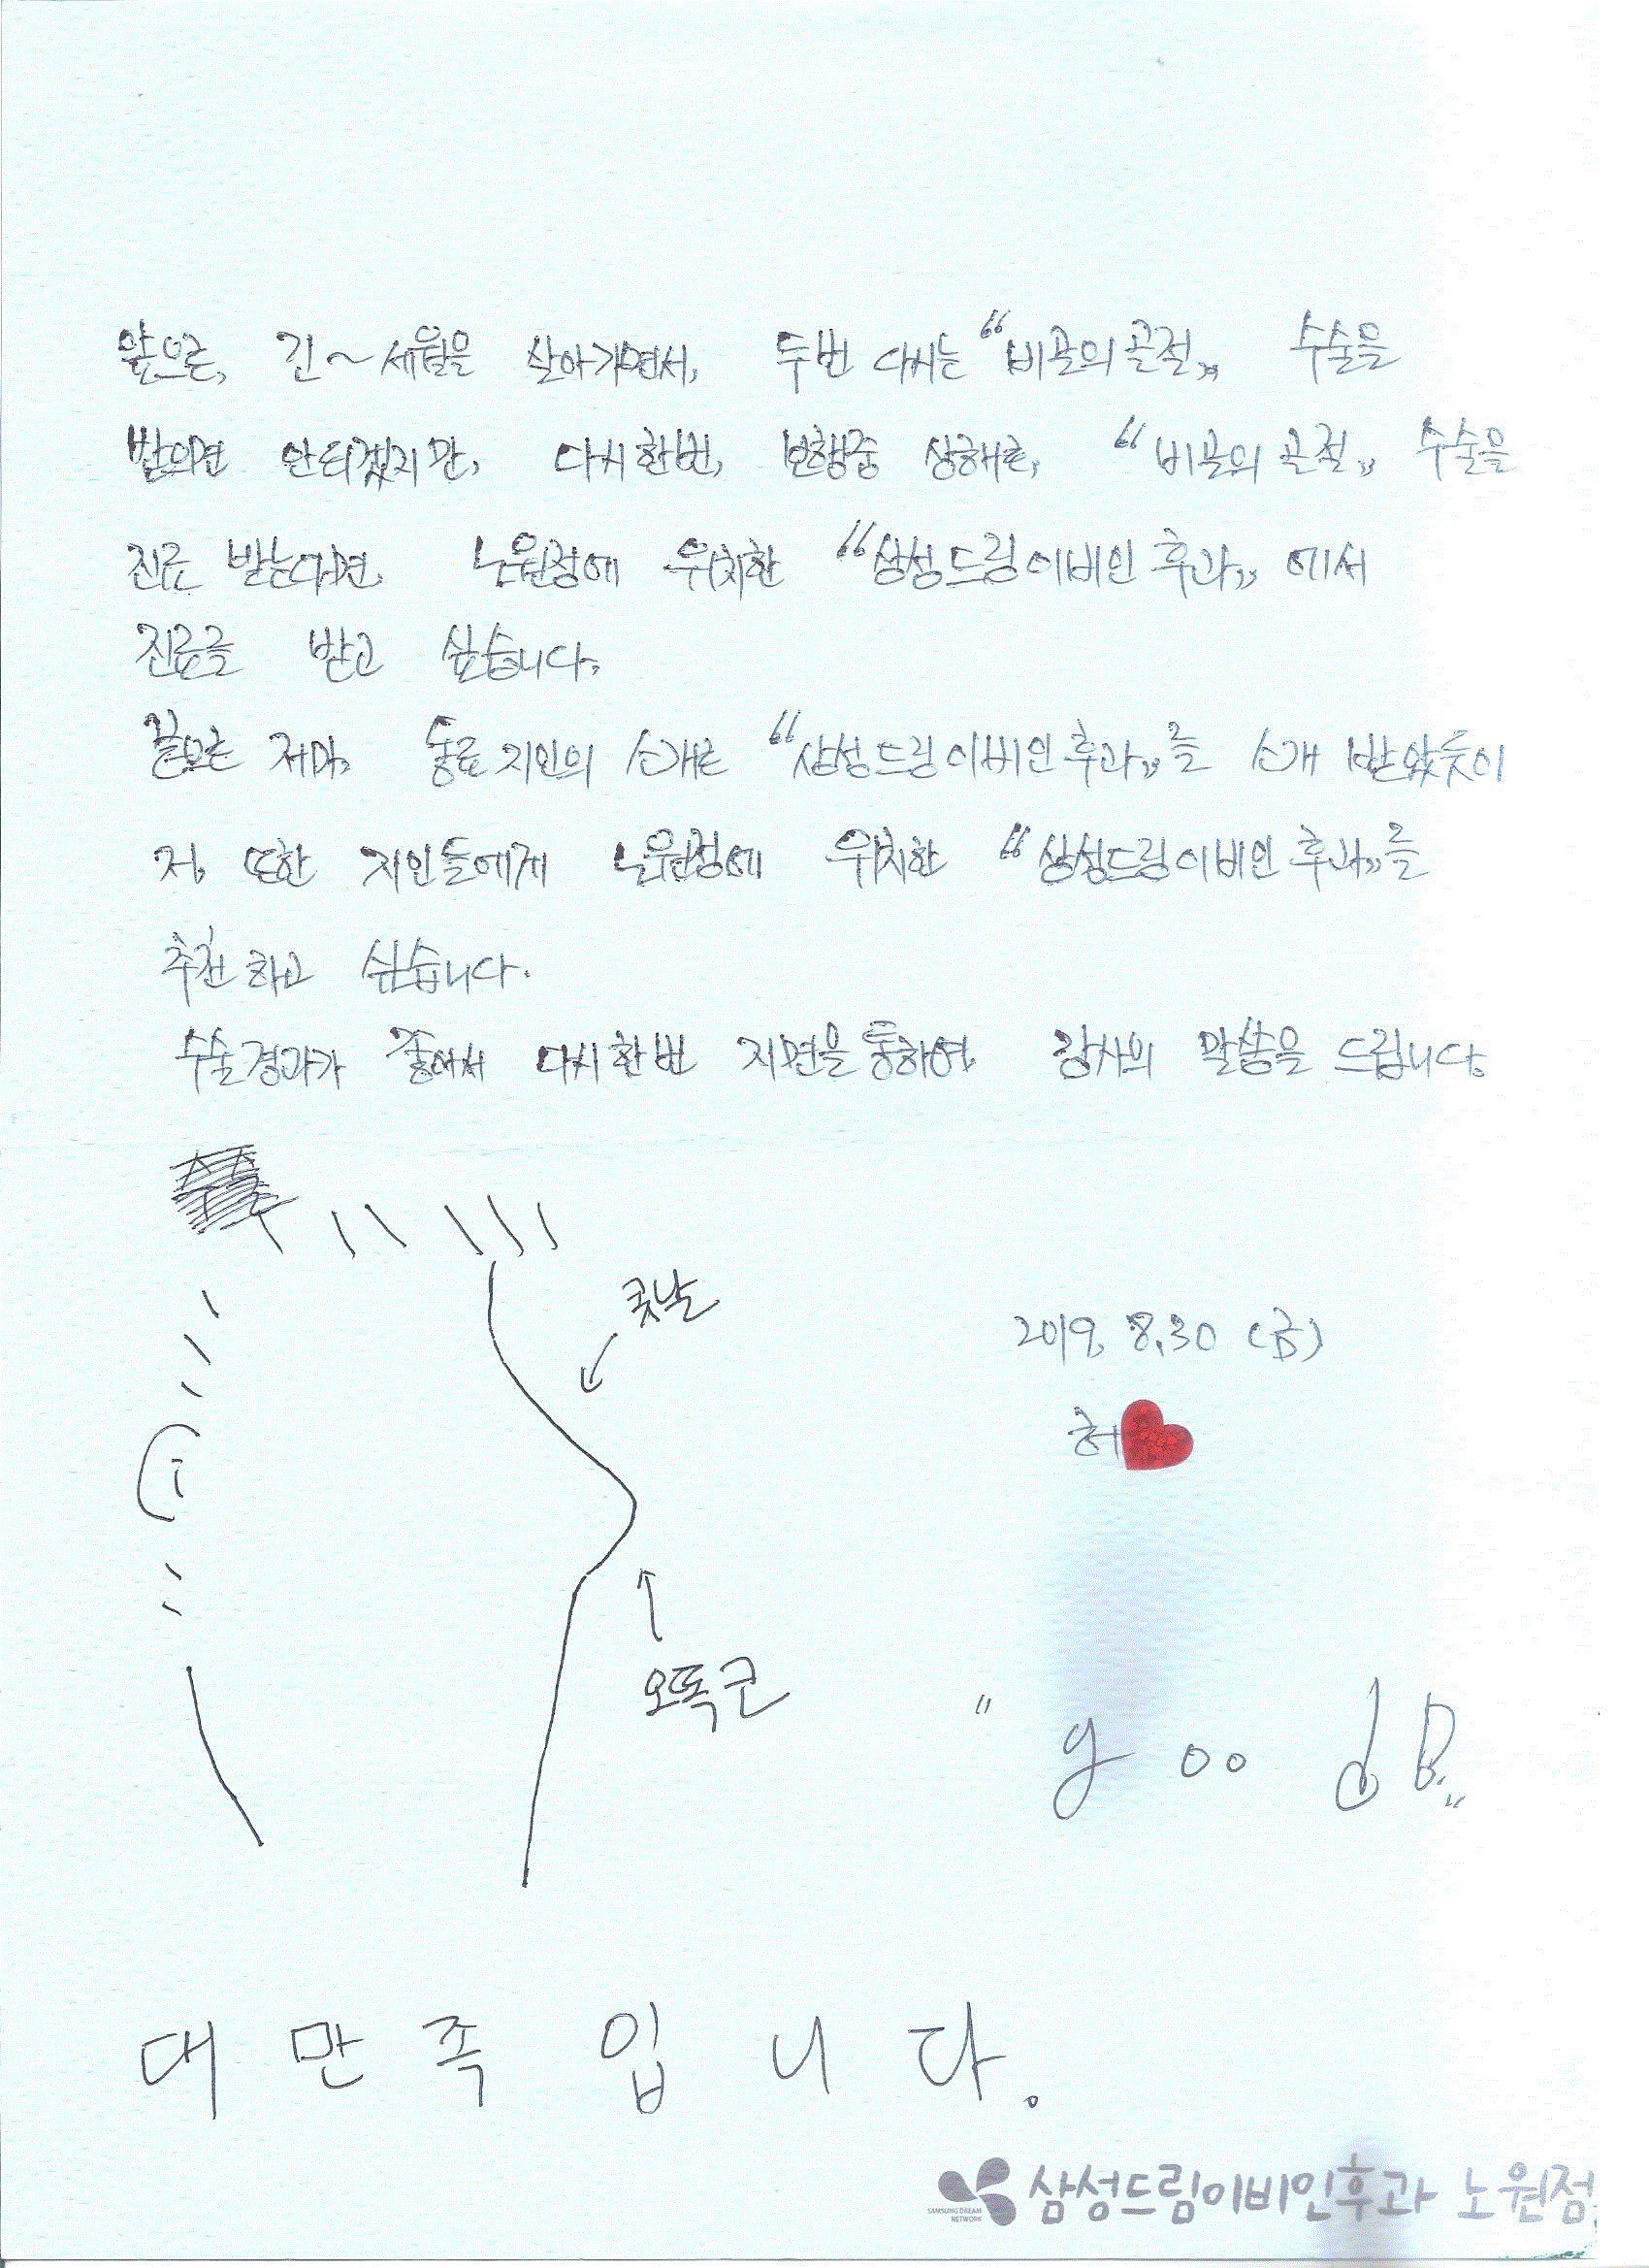 앞으로, 긴~세월을 살아가면서, 두번 다시는 “비골의골절„ 수술을
받으면 안되겠지만, 다시한번, 보행중 상해로, “비골의골절„ 수술을
진료 받는다면, 노원점에 위치한 “삼성드림이비인후과„ 에서
진료를 받고 싶습니다.
끝으로 저마, 동료지인의 소개로 “삼성드림이비인후과„를 소개 받았듯이
저, 또한 지인들에게 노원점에 위치한 “삼성드림이비인후과„를
추천하고 싶습니다.
수술경과가 좋아서 다시한번 지면을통하여, 감사의 말씀을 드립니다.
콧날
2019. 8.30 (금)
허
오똑큰
" good B. "
대만족입니다.
SAMSUNG DREAM NETWORK
삼성드림이비인후과 노원점